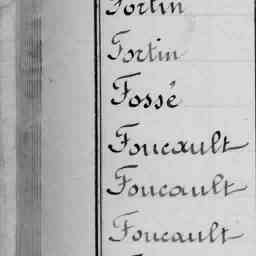 Fortin
Fortin
Fossé
Foucault
Foucault
Foucault